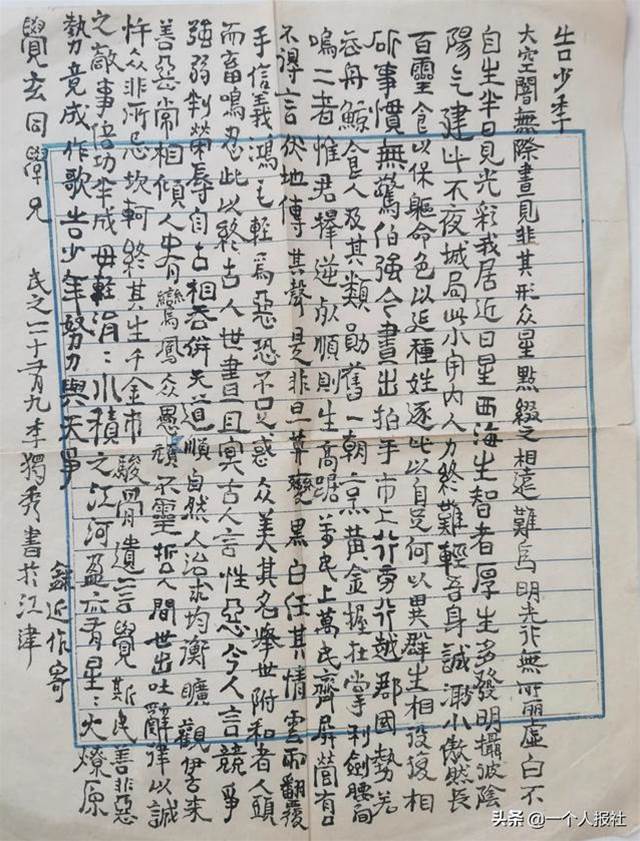 告少季
大空闇無際晝見非其形眾星點綴之相遠難爲明光行無所麗虛白不
自生半日見光彩我居近日星西海生智者厚生多發明攝彼陰
陽气建此不夜城局此小宇內人力終難輕吾身誠渺小傲然長
百靈食以保軀命色以延種姓逐此以自足何以異群生相役復相
斫事慣無驚伯強今晝出拍手市上行旁行越郡國勢若
吞舟鯨食人及其類勛舊一朝烹黃金握在掌利劍腰間
鳴二者惟君擇逆死順則生高踞萬民上萬民齊屏營有口
不得言伏地傳其聲是非旦暮變黑白任其情雲雨翻覆
手信義鴻毛輕爲惡恐不足惑众美其名舉世附和者人頭
而畜鳴忍此以終古人世晝且冥古人言性惡今人言競爭
強弱判榮辱自古相吞併天道順自然人治求均衡曠觀伊古來
善惡常相傾人中有鸞鳳众愚頑不靈哲人間世出吐辭律以誠
忤众非所忌坎軻終其生千金市駿骨遺言覺斯民善非惡
之敵事倍功半成毋輕涓〻水積之江河盈亦有星〻火燎原
勢竟成作歌告少年努力與天爭
錄近作寄
覺玄同學兄
民之二十有九季獨秀書於江津
头条 @一个人报社